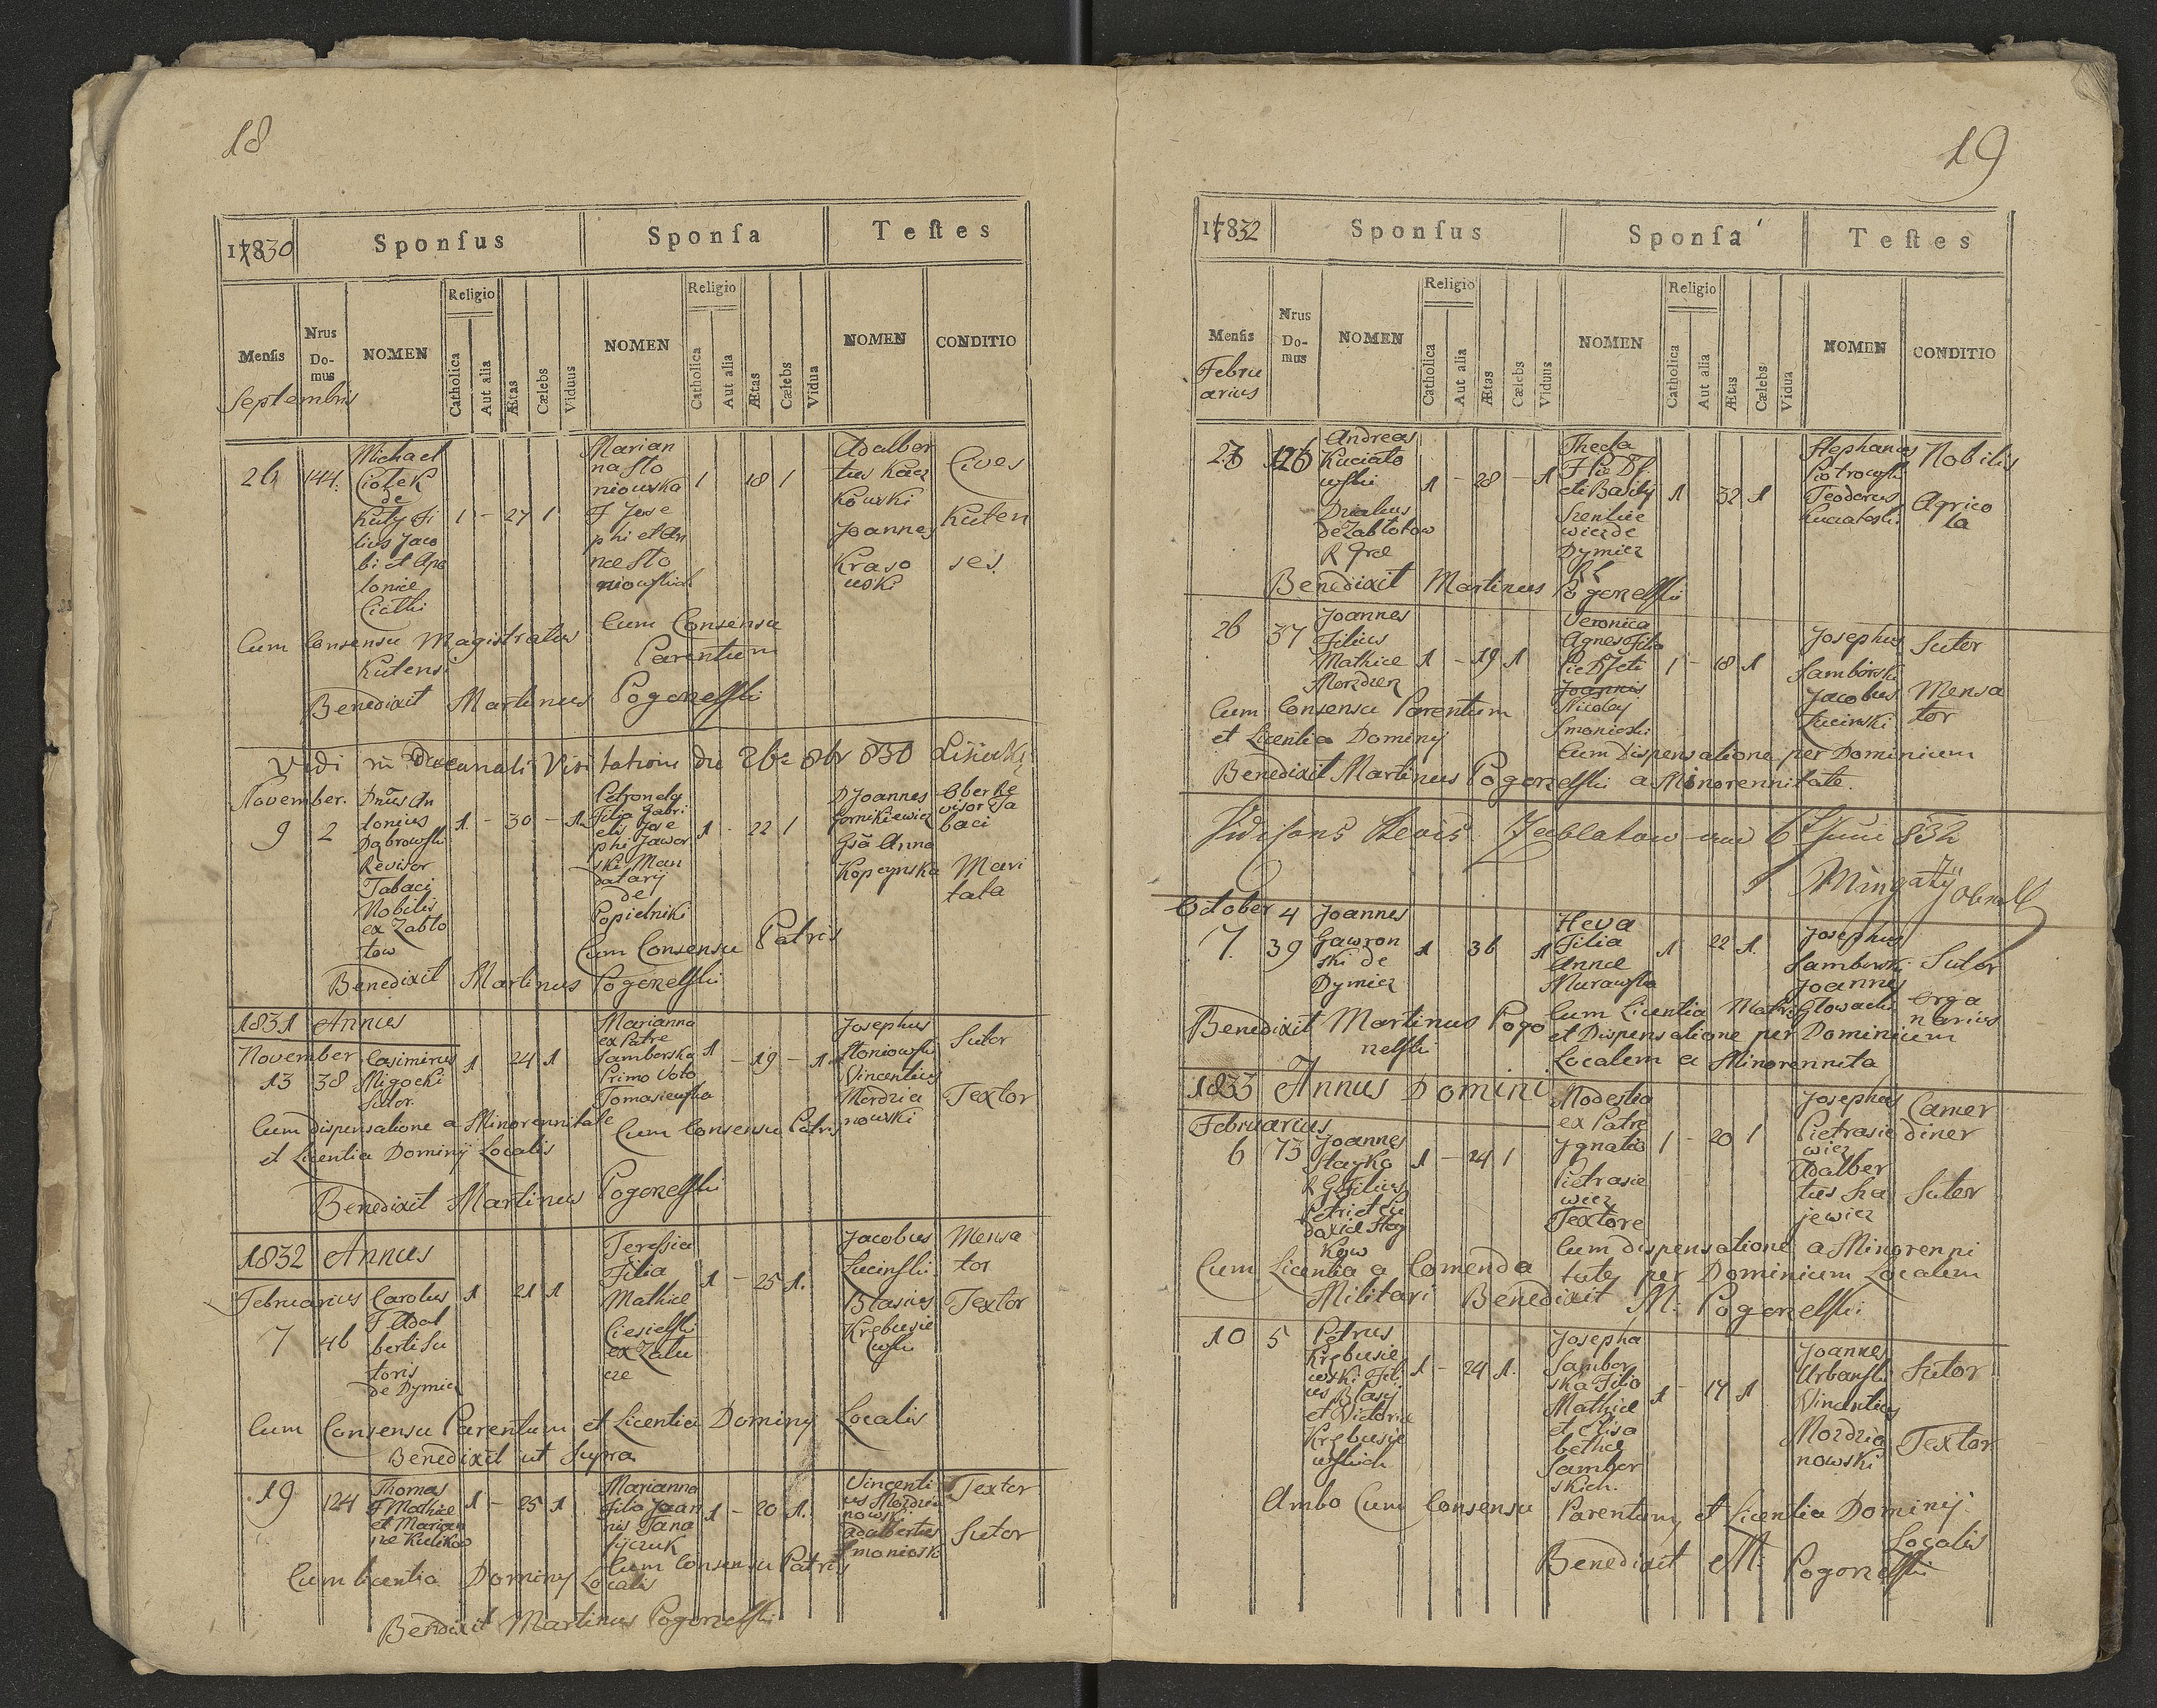 18
17830
Sponſus
Sponſa
Teſtes
Menſis
Nrus
Do-
mus
NOMEN
Religio
Catholica
Aut alia
Ætas
Cælebs
Viduus
NOMEN
Religio
Catholica
Aut alia
Ætas
Cælebs
Vidua
NOMEN
CONDITIO
Septembris
26 144.
Michael
Ciołek
de
Kuty Fi
lius Jaco
bi et Apo
loniæ
1 - 27 1
Marian
na Sto
niowska
F Jose
phi et An
næ Sto
1 18 1
Adalber
tus Kacz
kowski
Joannes
Kraso
wski
Cives
Kuten
ses.
Cum Consensu Magistratus
Kutensi
Cum Consensu
Parentum
Benedixit Martinus Pogonelski
Vidi in Decanali Visitatione die 26 8br 830
November.
9 2
Dnus An
tonius
Dąbrowski
Revisor
Tabaci
Nobilis
ex Zabło
tow
1. - 30 - 1
Petronela
Filia Gabri
elis Jose
phi Jawor
ski Man
datarij
de
Popielniki
1 - 22 1
D Joannes
Gornikiewicz
Gsa Anna
Kopcynska
Oberße
visor Ta
baci
Mari
tata
Cum Consensu Patris
Benedixit Martinus Pogonelski
1831 Annus
November
13 38
Casimirus
Migocki
Sutor.
1 24 1
Marianna
ex Patre
Samborska
Primo Voto
Tomasiewska
1 - 19 - 1
Josephus
Stoniowski
Vincentius
Mordzia
nowski
Sutor
Textor
Cum dispensatione a Minorennitate
et Licentia Dominij Localis
Cum Consensu Patris
Benedixit Martinus Pogonelski
1832 Annus
Februarius
7 46
Carolus
F Adal
berti Su
toris
de Dymicz
1 21 1
Teressia
Filia
Mathiæ
Ciesielski
ex Zału
cze
1 - 25 1.
Jacobus
Łucinski
Blasius
Krębusie
wski
Mensa
tor
Textor
Cum Consensu Parentum et Licentia Dominij Localis
Benedixit ut Supra
19 124
Thomas
F Mathiæ
et Marian
næ Kulikow
1 - 25 1
Marianna
Filia Joan
nis Tana
sijczuk
1 - 20 1.
Vincenti
us Mordzia
nowski
Adalbertus
Smonioski
Textor
Sutor
Cum licentia Dominij Localis
Cum Consensu Patris
Benedixit Martinus Pogonelski
19
17832
Sponſus
Sponſa
Teſtes
Menſis
Nrus
Do-
mus
NOMEN
Religio
Catholica
Aut alia
Ætas
Cælebs
Viduus
NOMEN
Religio
Catholica
Aut alia
Ætas
Cælebs
Vidua
NOMEN
CONDITIO
Febru
arius
126
Andreas
Kuciato
wski
de Zabłotow
1 - 28 - 1
Thecla
et Basilij
wicz de
Dymicz
1 32 1
Stephanus
Piotrowski
Teodorus
Kuciatoski
Nobilis
Agrico
la
Benedixit Martinus Pogonelski
26 37
Joannes
Filius
Mathiæ
Mordzien
1 - 19 1
Veronica
Agnes Filia
Joannis
Nicolaj
Smonioski
1 - 18 1
Josephus
Samborski
Jacobus
Łucinski
Sutor
Mensa
tor
Cum Consensu Parentum
et Licentia Dominij
Cum Dispensatione per Dominium
Benedixit Martinus Pogonelski a Minorennitate.
October
7. 39
Joannes
Gawron
ski de
Dymicz
1 36 1
Heva
Filia
Annæ
Murawska
1 22 1.
Josephus
Samborski
Joannes
Głowacki
Sutor
Orga
narius
Benedixit Martinus Pogo
nelski
Cum Licentia Matris
et Dispensatione per Dominium
Localem a Minorennita
1833 Annus Domini
Februarius
6 73
Joannes
Stayko
1 - 24 1
Modestia
ex Patre
Ignatio
Pietrasie
wicz
Textore
1 - 20 1
Josephus
Pietrasie
wicz
Adalber
tus Sza
jewicz
Camer
diner
Sutor
Cum Licentia a Comenda
Militari
Cum dispensatione a Minorenni
tate per Dominium Localem
Benedixit M. Pogonelski
10 5
Petrus
Krębusie
wski Fili
us Blasij
et Victoriæ
Krębusie
wskich
1 - 24 1.
Josepha
Sambor
ska Filia
Mathiæ
et Elisa
bethæ
Sambor
skich.
1 - 17 1
Joannes
Urbanski
Vincentius
Mordzia
nowski
Sutor
Textor
Ambo Cum Consensu Parentum et Licentia Dominij
Localis
Benedixit M. Pogonelski